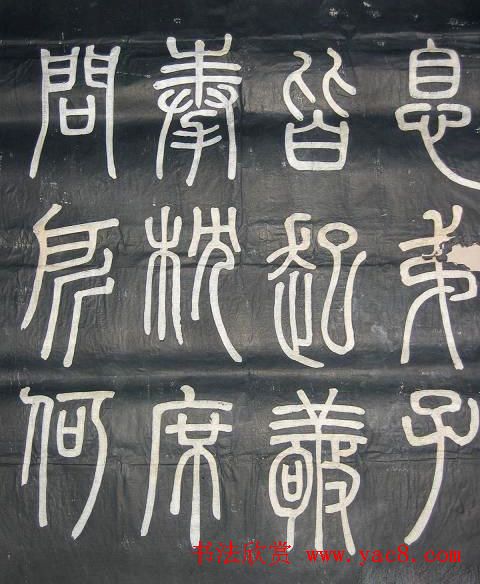 息弟子
皆起敬
奉枕席
問所何
书法欣赏 www.yac8.com